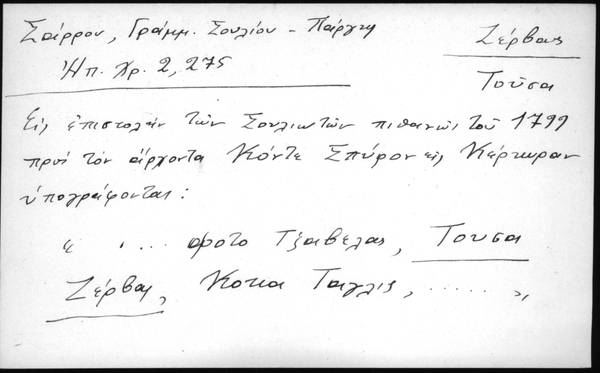 Σάρρου, Γράμμ. Σουλίου - Πάργης
Ζέρβας
Ἠπ. Χρ. 2, 275
Τούσα
Εἰς ἐπιστολὴν τῶν Σουλιωτῶν πιθανῶς τοῦ 1799
πρὸς τὸν ἄρχοντα Κόντε Σπύρον εἰς Κέρκυραν
ὑπογράφονται:
" . . . . φοτο Τζαβελας, Τουσα
Ζέρβας, Κοτζα Ταγλις, ...... "